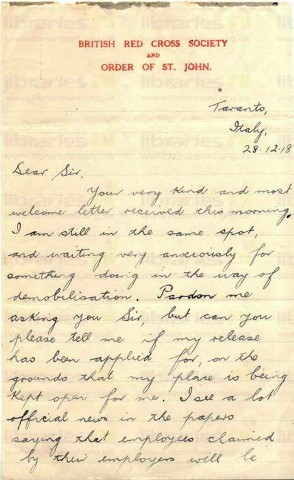 BRITISH RED CROSS SOCIETY
AND
ORDER OF ST. JOHN.
Taranto,
Italy,
28.12.18
Dear Sir,
Your very kind and most
welcome letter received this morning.
I am still in the same spot,
and waiting very anxiously for
something doing in the way of
demobilisation. Pardon me
asking you Sir, but can you
please tell me if my release
has been applied for, on the
grounds that my place is being
kept open for me. I see a lot
official news in the papers
saying that employees claimed
by their employers will be